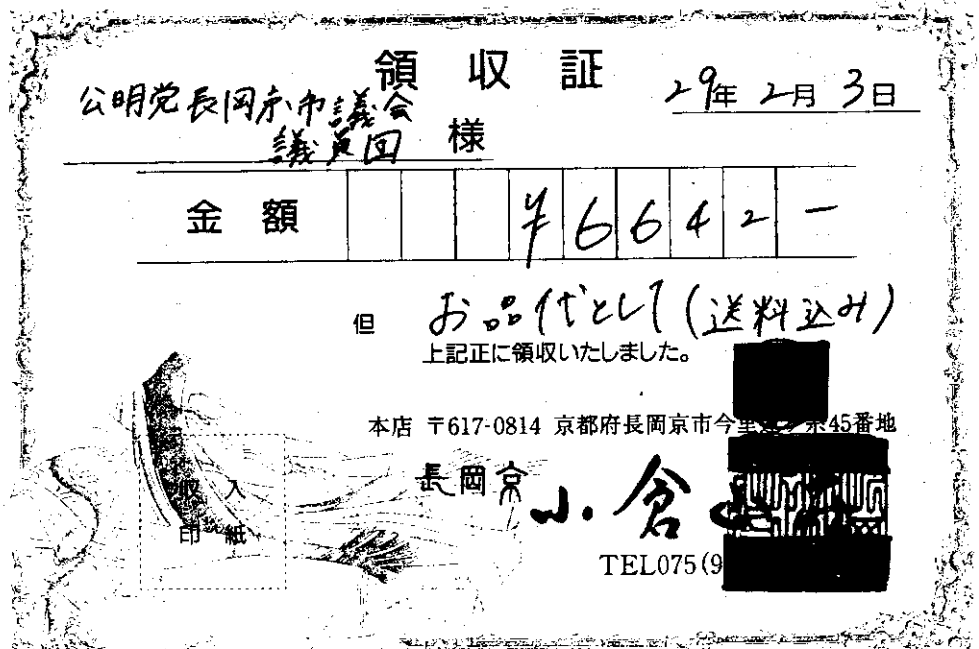 領収証
29年2月3日
公明党長岡京市議会
議員団 様
金額 ¥6642-
但 お品代として(送料込み)
上記正に領収いたしました。
本店 〒617-0814 京都府長岡京市今里 45番地
長岡京
小倉
TEL075(9
収入
印紙